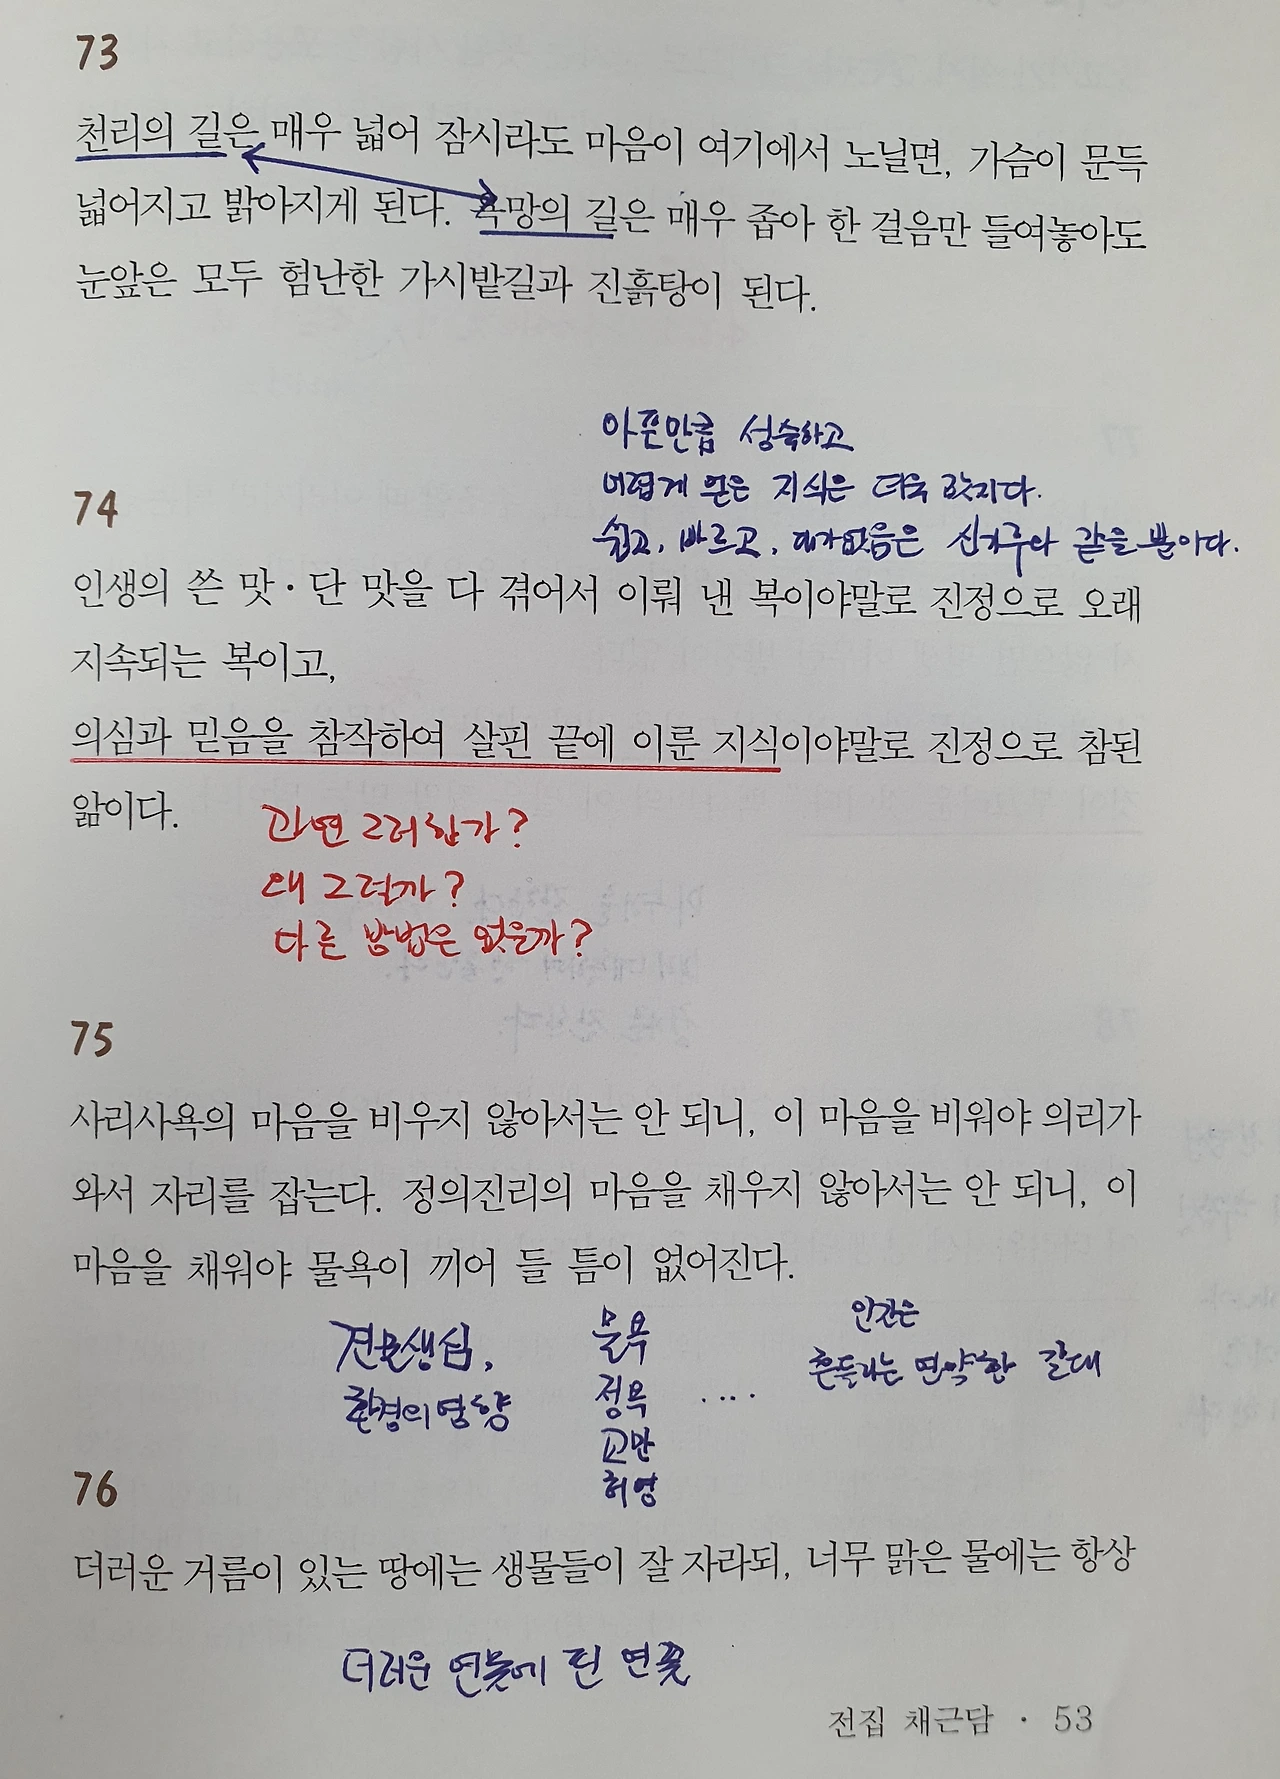 73
천리의 길은 매우 넓어 잠시라도 마음이 여기에서 노닐면, 가슴이 문득
넓어지고 밝아지게 된다. 욕망의 길은 매우 좁아 한 걸음만 들여놓아도
눈앞은 모두 험난한 가시밭길과 진흙탕이 된다.
아픈만큼 성숙하고
어렵게 얻은 지식은 더욱 값지다.
쉽고, 빠르고, 대가없음은 신기루와 같을 뿐이다.
74
인생의 쓴 맛·단 맛을 다 겪어서 이뤄 낸 복이야말로 진정으로 오래
지속되는 복이고,
의심과 믿음을 참작하여 살핀 끝에 이룬 지식이야말로 진정으로 참된
앎이다.
과연 그러한가?
왜 그럴까?
다른 방법은 없을까?
75
사리사욕의 마음을 비우지 않아서는 안 되니, 이 마음을 비워야 의리가
와서 자리를 잡는다. 정의진리의 마음을 채우지 않아서는 안 되니, 이
마음을 채워야 물욕이 끼어 들 틈이 없어진다.
견물생심,
환경의 영향
물욕
정욕
교만
허영
....
인간은
흔들리는 연약한 갈대
76
더러운 거름이 있는 땅에는 생물들이 잘 자라되, 너무 맑은 물에는 항상
더러운 연못에 핀 연꽃
전집 채근담 · 53